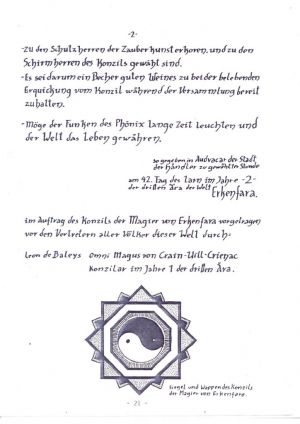 -2-
-zu den Schutzherren der Zauberkunst erkoren, und zu den
Schirmherren des Konzils gewählt sind.
-Es sei darum ein Becher guten Weines zu beider belebenden
Erquickung vom Konzil während der Versammlung bereit
zuhalten.
-Möge der Funken des Phönix lange Zeit leuchten und
der Welt das Leben gewähren.
so gegeben in Audvacar der Stadt
der Händler zu gewählter Stunde
am 42. Tag des Tarn im Jahre -2-
der dritten Ära der Welt
Erkenfara.
im Auftrag des Konzils der Magier von Erkenfara vorgetragen
vor den Vertretern aller Völker dieser Welt durch:
Leon de Baleys Omni Magus von Crain-Uill-Crienac
Konzilar im Jahre 1 der dritten Ära.
Siegel und Wappen des Konzils
der Magier von Erkenfara.
- 21 -